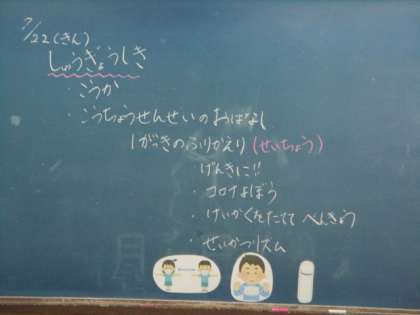 7/22(きん)
しゅうぎょうしき
・こうか
・こうちょうせんせいのおはなし
1がっきのふりかえり(せいちょう)
げんきに!!
・コロナよぼう
・けいかくをたててべんきょう
・せいかつリズム